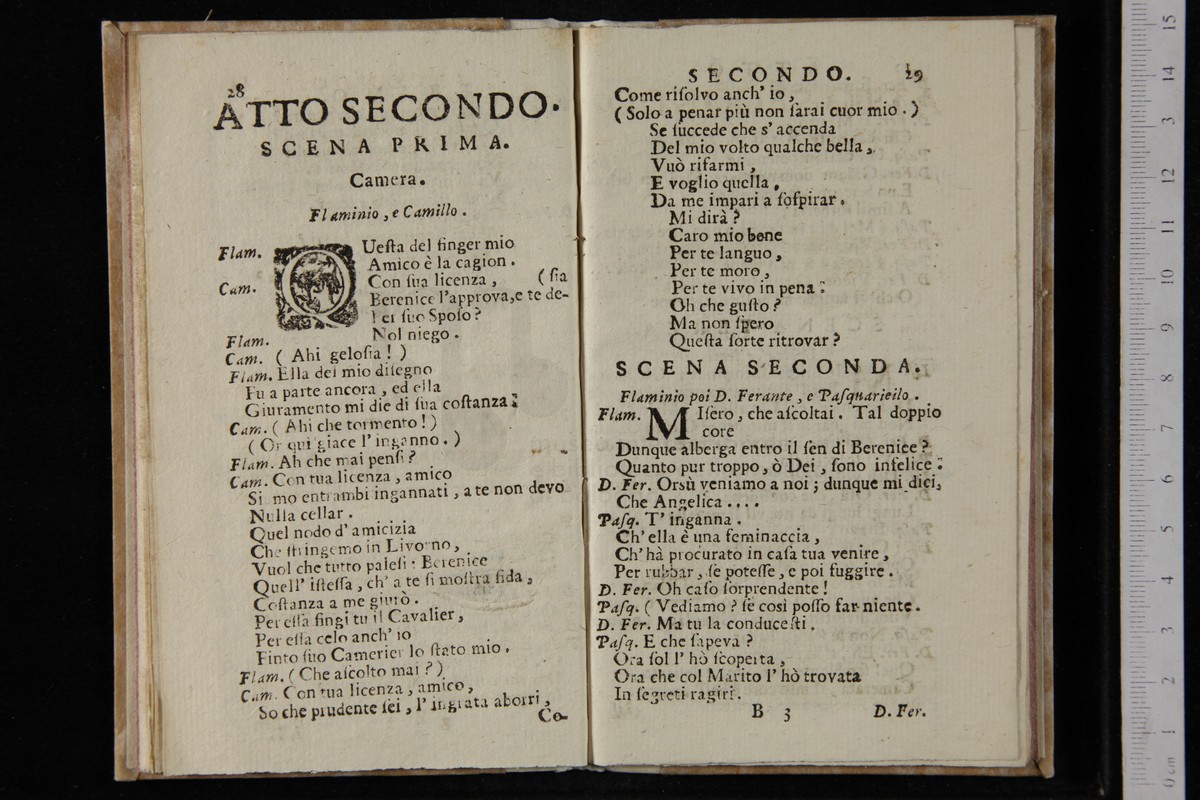 28
ATTO SECONDO.
SCENA PRIMA.
Camera.
Flaminio, e Camillo.
Flam. QUeſta del finger mio
Amico è la cagion.
Cam. Con ſua licenza, (ſia
Berenice l'approva, e te de-
Per ſuo Spoſo?
Flam. Nol niego.
Cam. ( Ahi geloſia! )
Flam. Ella del mio diſegno
Fu a parte ancora, ed ella
Giuramento mi die di ſua coſtanza:
Cam. ( Ahi che tormento! )
( Or qui giace l'inganno. )
Flam. Ah che mai penſi?
Cam. Con tua licenza, amico
Si mo entrambi ingannati, a te non devo
Nulla cellar.
Quel nodo d'amicizia
Che ſtringemo in Livorno,
Vuol che tutto paleſi: Berenice
Quell' iſteſſa, ch'a te ſi moſtra fida,
Coſtanza a me giurò.
Per eſſa fingi tu il Cavalier,
Per eſſa celo anch' io
Finto ſuo Camerier lo ſtato mio.
Flam. ( Che aſcolto mai? )
Cam. Con tua licenza, amico,
So che prudente ſei, l'ingrata aborri,
Co-
SECONDO. 29
Come riſolvo anch' io,
( Solo a penar più non ſarai cuor mio. )
Se ſuccede che s'accenda
Del mio volto qualche bella,
Vuò rifarmi,
E voglio quella,
Da me impari a ſoſpirar.
Mi dirà?
Caro mio bene
Per te languo,
Per te moro,
Per te vivo in pena:
Oh che guſto?
Ma non ſpero
Queſta ſorte ritrovar?
SCENA SECONDA.
Flaminio poi D. Ferante, e Paſquariello.
Flam. MIſero, che aſcoltai. Tal doppio
core
Dunque alberga entro il ſen di Berenice?
Quanto pur troppo, ò Dei, ſono infelice:
D. Fer. Orsù veniamo a noi; dunque mi dici,
Che Angelica ....
Paſq. T'inganna.
Ch' ella è una feminaccia,
Ch'hà procurato in caſa tua venire,
Per rubbar, ſe poteſſe, e poi fuggire.
D. Fer. Oh caſo ſorprendente!
Paſq. ( Vediamo? ſe così poſſo far niente.
D. Fer. Ma tu la conduceſti.
Paſq. E che ſapeva?
Ora ſol l'hò ſcoperta,
Ora che col Marito l'hò trovata
In ſegreti ragiri.
B 3 D. Fer.
15
14
3
12
11
10
9
8
7
6
5
4
3
2
1
0 cm